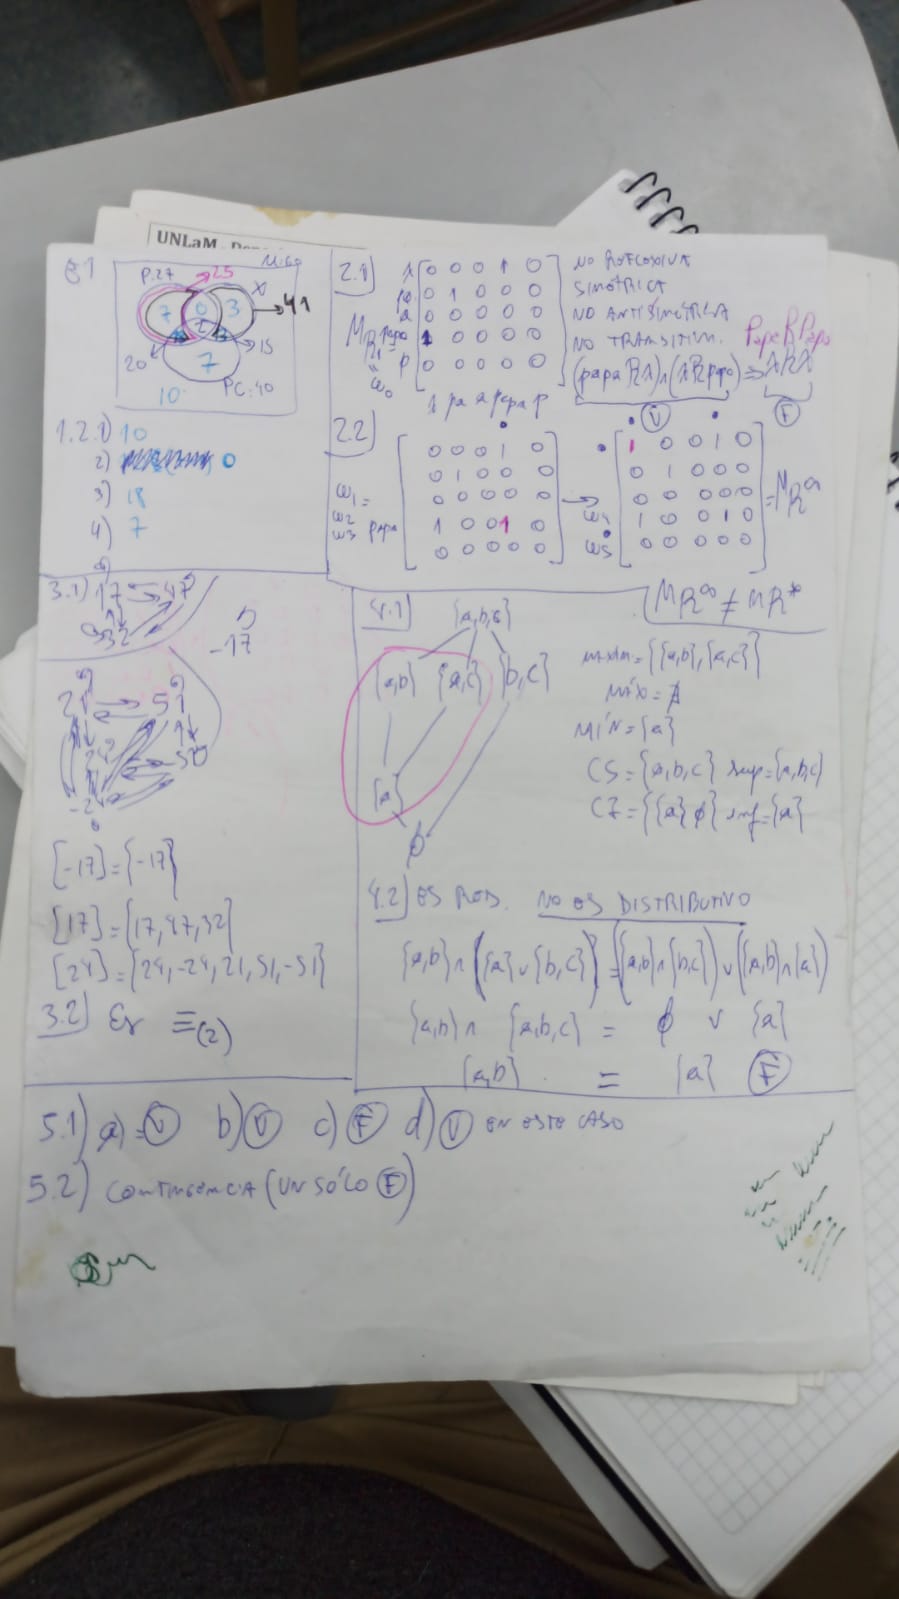 UNLaM
M:60
P:27
25
7
0
3
41
2
20
15
7
PC:40
10
1.2.1) 10
2) 0
3) 18
4) 7
2.1)
λ 0 0 0 1 0
pa 0 1 0 0 0
a 0 0 0 0 0
papa 1 0 0 0 0
p 0 0 0 0 0
λ pa a papa p
NO REFLEXIVA
SIMÉTRICA
NO ANTISIMÉTRICA
NO TRANSITIVA.
Papa R Papa
(papa R λ) ∧ (λ R papa) ⇒ λ R λ
V F
2.2)
ω1 =
ω2
ω3 papa
0 0 0 1 0
0 1 0 0 0
0 0 0 0 0
1 0 0 1 0
0 0 0 0 0
→
ω4
ω5
1 0 0 1 0
0 1 0 0 0
0 0 0 0 0
1 0 0 1 0
0 0 0 0 0
= MR∞
MR∞ ≠ MR*
3.1) 17 47
32
-17
21 51
[-17]={-17}
[17]={17,47,32}
[24]={24,-24,21,51,-51}
3.2) Es ≡(2)
4.1) {a,b,c}
{a,b} {a,c} {b,c}
{a}
φ
maxim={{a,b},{a,c}}
MÁX=∄
MÍN={a}
CS={a,b,c} sup={a,b,c}
CI={{a} φ} inf={a}
4.2) ES RED. NO ES DISTRIBUTIVO
{a,b} ∧ ({a} ∨ {b,c}) = ({a,b} ∧ {b,c}) ∨ ({a,b} ∧ {a})
{a,b} ∧ {a,b,c} = φ ∨ {a}
{a,b} = {a} F
5.1) a) V b) V c) F d) V EN ESTE CASO
5.2) CONTINGENCIA (UN SÓLO F)